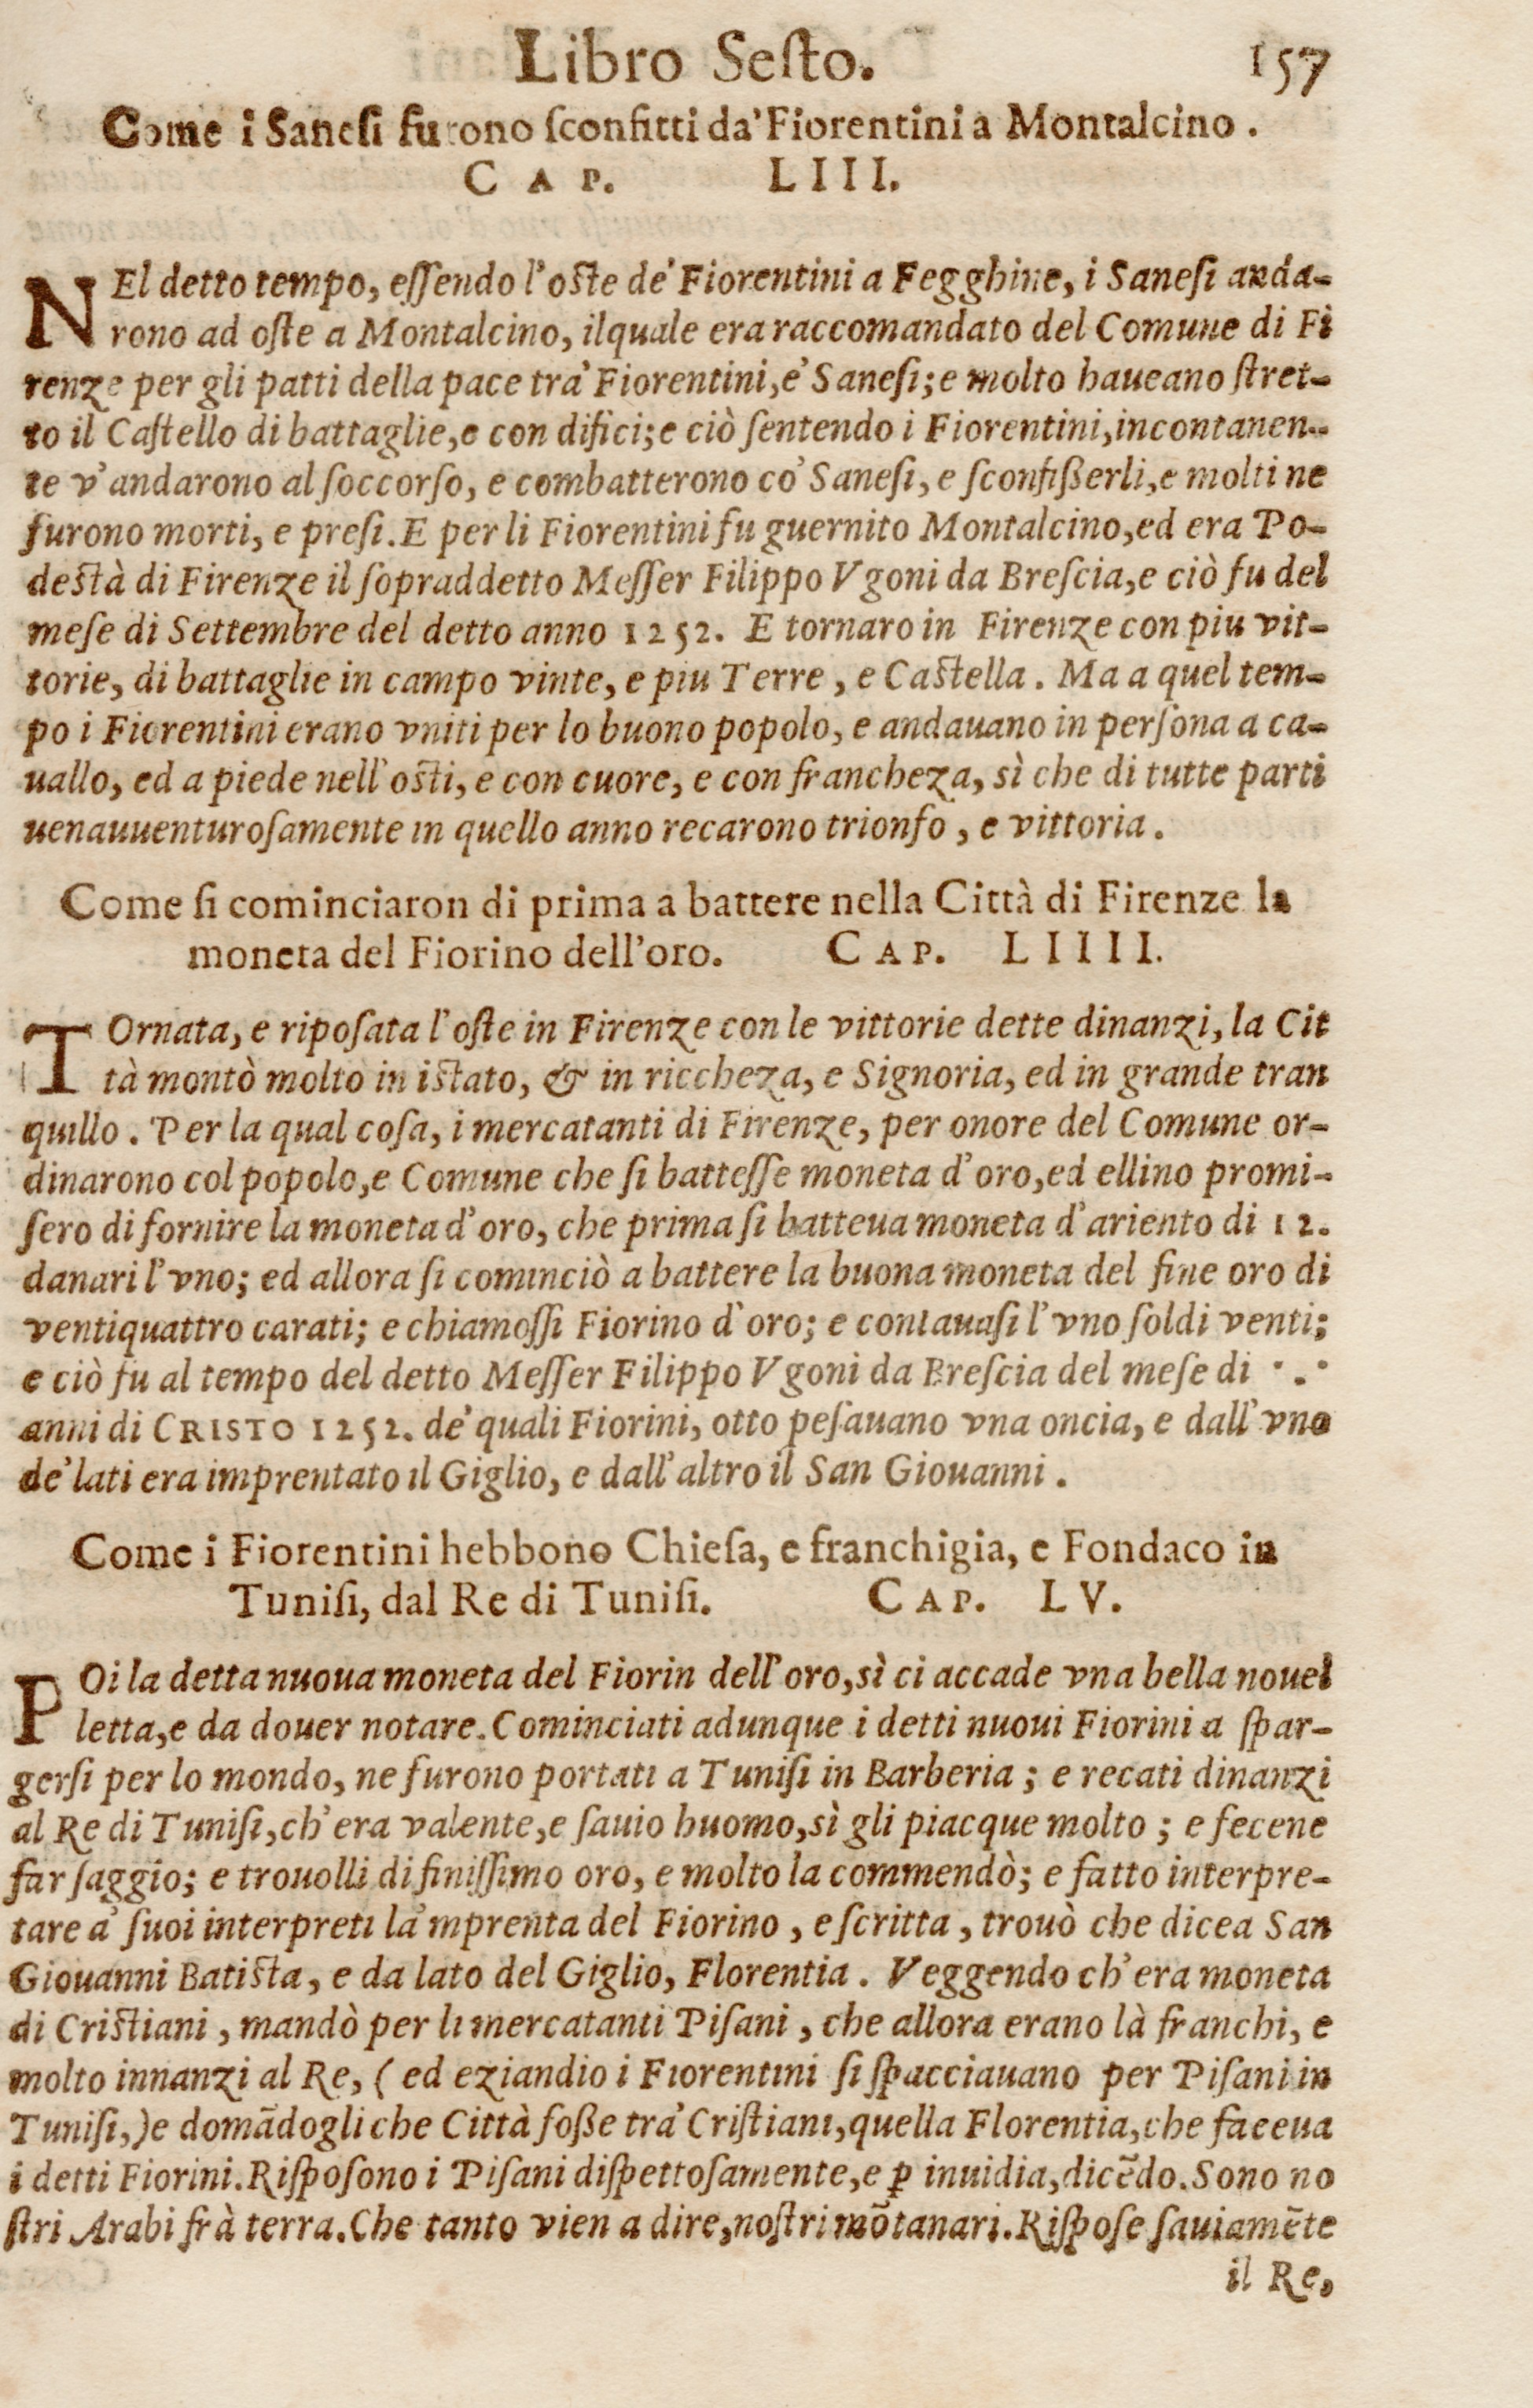 Libro Sesto. 157
Come i Sanesi furono sconfitti da' Fiorentini a Montalcino.
CAP. LIII.
NEl detto tempo, essendo l'oste de' Fiorentini a Fegghine, i Sanesi anda-
rono ad oste a Montalcino, ilquale era raccomandato del Comune di Fi
renze per gli patti della pace tra' Fiorentini, e' Sanesi; e molto haueano stret-
to il Castello di battaglie, e con difici; e ciò sentendo i Fiorentini, incontanen-
te v'andarono al soccorso, e combatterono co' Sanesi, e sconfißerli, e molti ne
furono morti, e presi. E per li Fiorentini fu guernito Montalcino, ed era Po-
destà di Firenze il sopraddetto Messer Filippo Vgoni da Brescia, e ciò fu del
mese di Settembre del detto anno 1252. E tornaro in Firenze con piu vit-
torie, di battaglie in campo vinte, e piu Terre, e Castella. Ma a quel tem-
po i Fiorentini erano vniti per lo buono popolo, e andauano in persona a ca-
uallo, ed a piede nell'osti, e con cuore, e con francheza, sì che di tutte parti
uenauuenturosamente in quello anno recarono trionfo, e vittoria.
Come si cominciaron di prima a battere nella Città di Firenze la
moneta del Fiorino dell'oro. CAP. LIIII.
TOrnata, e riposata l'oste in Firenze con le vittorie dette dinanzi, la Cit
tà montò molto in istato, & in riccheza, e Signoria, ed in grande tran
quillo. Per la qual cosa, i mercatanti di Firenze, per onore del Comune or-
dinarono col popolo, e Comune che si battesse moneta d'oro, ed ellino promi-
sero di fornire la moneta d'oro, che prima si batteua moneta d'ariento di 12.
danari l'vno; ed allora si cominciò a battere la buona moneta del fine oro di
ventiquattro carati; e chiamossi Fiorino d'oro; e contauasi l'vno soldi venti;
e ciò fu al tempo del detto Messer Filippo Vgoni da Brescia del mese di . . .
anni di CRISTO 1252. de' quali Fiorini, otto pesauano vna oncia, e dall'vno
de' lati era imprentato il Giglio, e dall'altro il San Giouanni.
Come i Fiorentini hebbono Chiesa, e franchigia, e Fondaco in
Tunisi, dal Re di Tunisi. CAP. LV.
POi la detta nuoua moneta del Fiorin dell'oro, sì ci accade vna bella nouel
letta, e da douer notare. Cominciati adunque i detti nuoui Fiorini a spar-
gersi per lo mondo, ne furono portati a Tunisi in Barberia; e recati dinanzi
al Re di Tunisi, ch'era valente, e sauio huomo, sì gli piacque molto; e fecene
far saggio; e trouolli di finissimo oro, e molto la commendò; e fatto interpre-
tare a' suoi interpreti la'mprenta del Fiorino, e scritta, trouò che dicea San
Giouanni Batista, e da lato del Giglio, Florentia. Veggendo ch'era moneta
di Cristiani, mandò per li mercatanti Pisani, che allora erano là franchi, e
molto innanzi al Re, (ed eziandio i Fiorentini si spacciauano per Pisani in
Tunisi,) e domãdogli che Città foße tra' Cristiani, quella Florentia, che faceua
i detti Fiorini. Risposono i Pisani dispettosamente, e ꝑ inuidia, dicẽdo. Sono no
stri Arabi frà terra. Che tanto vien a dire, nostri mõtanari. Rispose sauiamẽte
il Re,